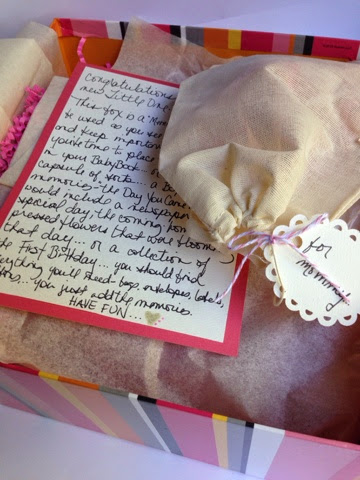 Congratulations
new Little One
This box is a "Mem
be used as you see
and keep importan
you've time to place
in your BabyBook
capsule of sorts... a Bo
memories - the Day You Came
would include a newspaper
special day, the coming hom
pressed flowers that were bloomin
that day... or a collection of
the First Birthday... you should find
everything you'll need - bags, envelopes, labels,
... you just add the memories.
HAVE FUN...
for
mommy